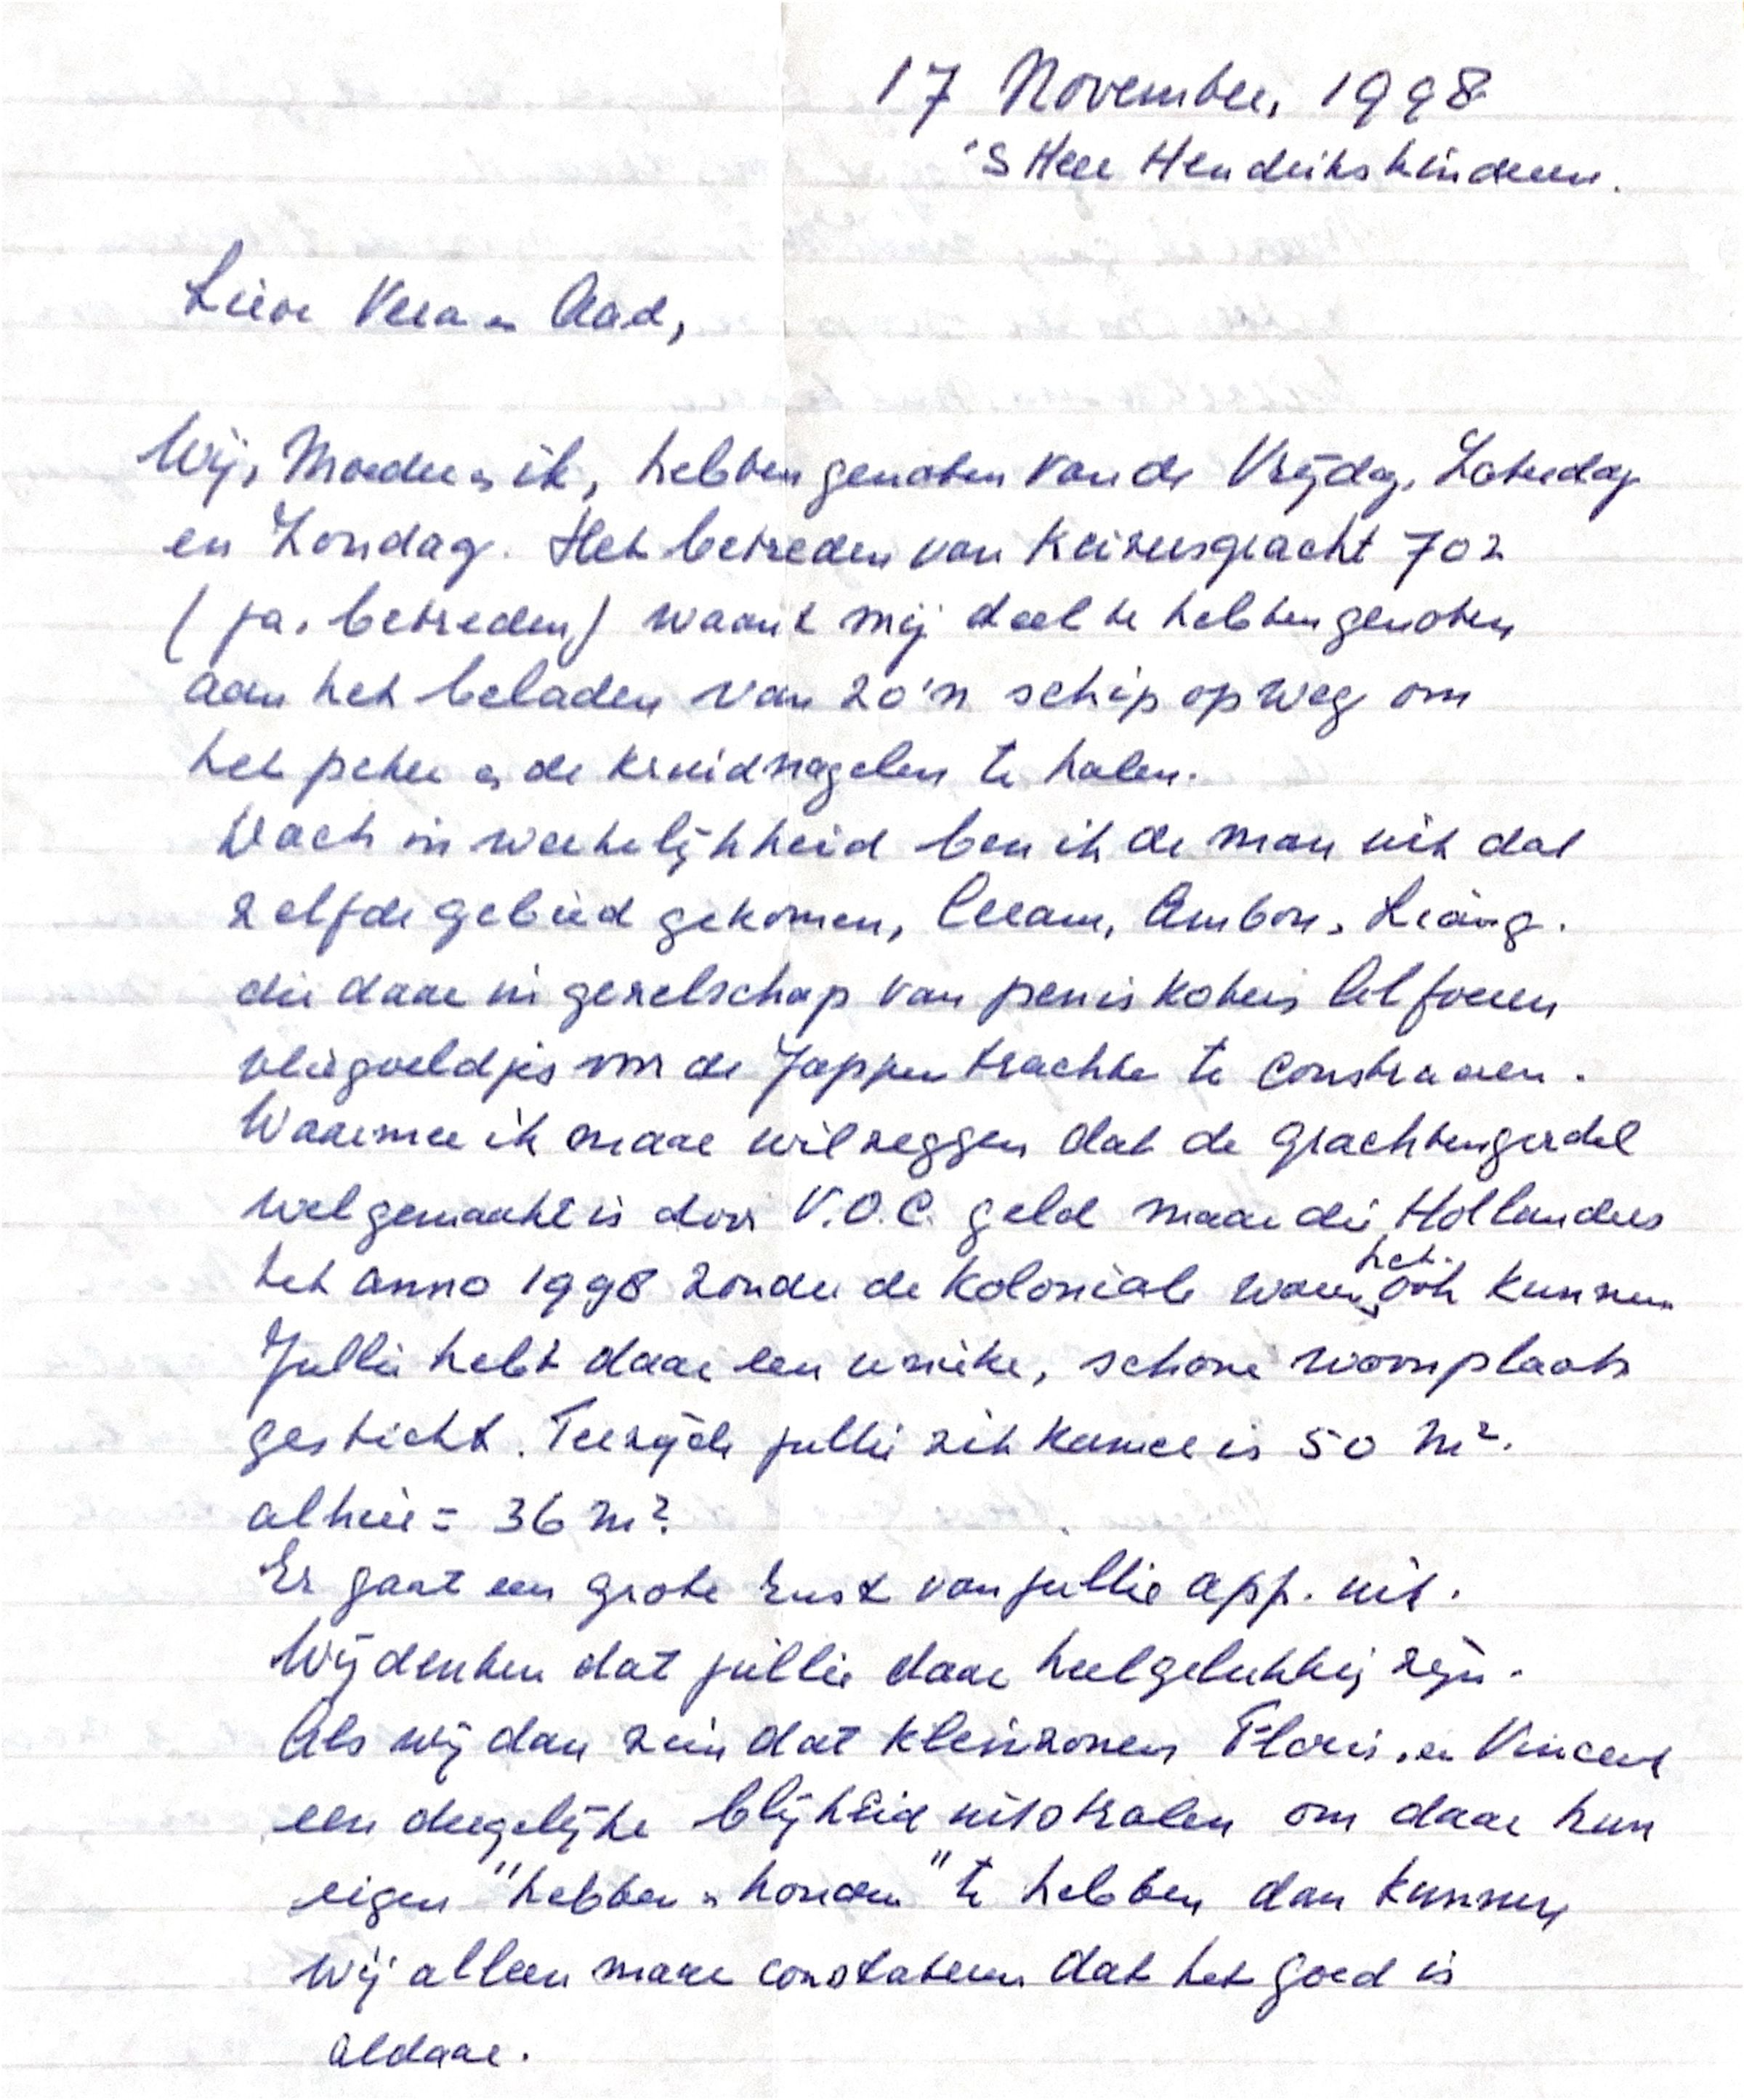 17 November, 1998
's Heer Hendrikskinderen.
Lieve Vera en Aad,
Wij, Moeder en ik, hebben genoten van de Vrijdag, Zaterdag
en Zondag. Het betreden van Keizersgracht 702
(ja, betreden) waant mij deel te hebben genoten
aan het beladen van zo'n schip op weg om
het peper en de kruidnagelen te halen.
Doch in werkelijkheid ben ik de man uit dat
zelfde gebied gekomen, Ceram, Ambon, Liang.
die daar in gezelschap van peniskokers Alfoeren
vliegveldjes voor de Jappen trachtte te construeren.
Waarmee ik maar wil zeggen dat de grachtengordel
wel gemaakt is door V.O.C. geld maar die Hollanders
het anno 1998 zonder de koloniale waren het ook kunnen
Jullie hebt daar een unieke, schone woonplaats
gesticht. Terzijde jullie zitkamer is 50 m².
alhier = 36 m².
Er gaat een grote rust van jullie app. uit.
Wij denken dat jullie daar heel gelukkig zijn.
Als wij dan zien dat kleinzonen Floris en Vincent
een degelijke blijheid uitstralen om daar hun
eigen "hebben en houden" te hebben dan kunnen
wij alleen maar constateren dat het goed is
aldaar.